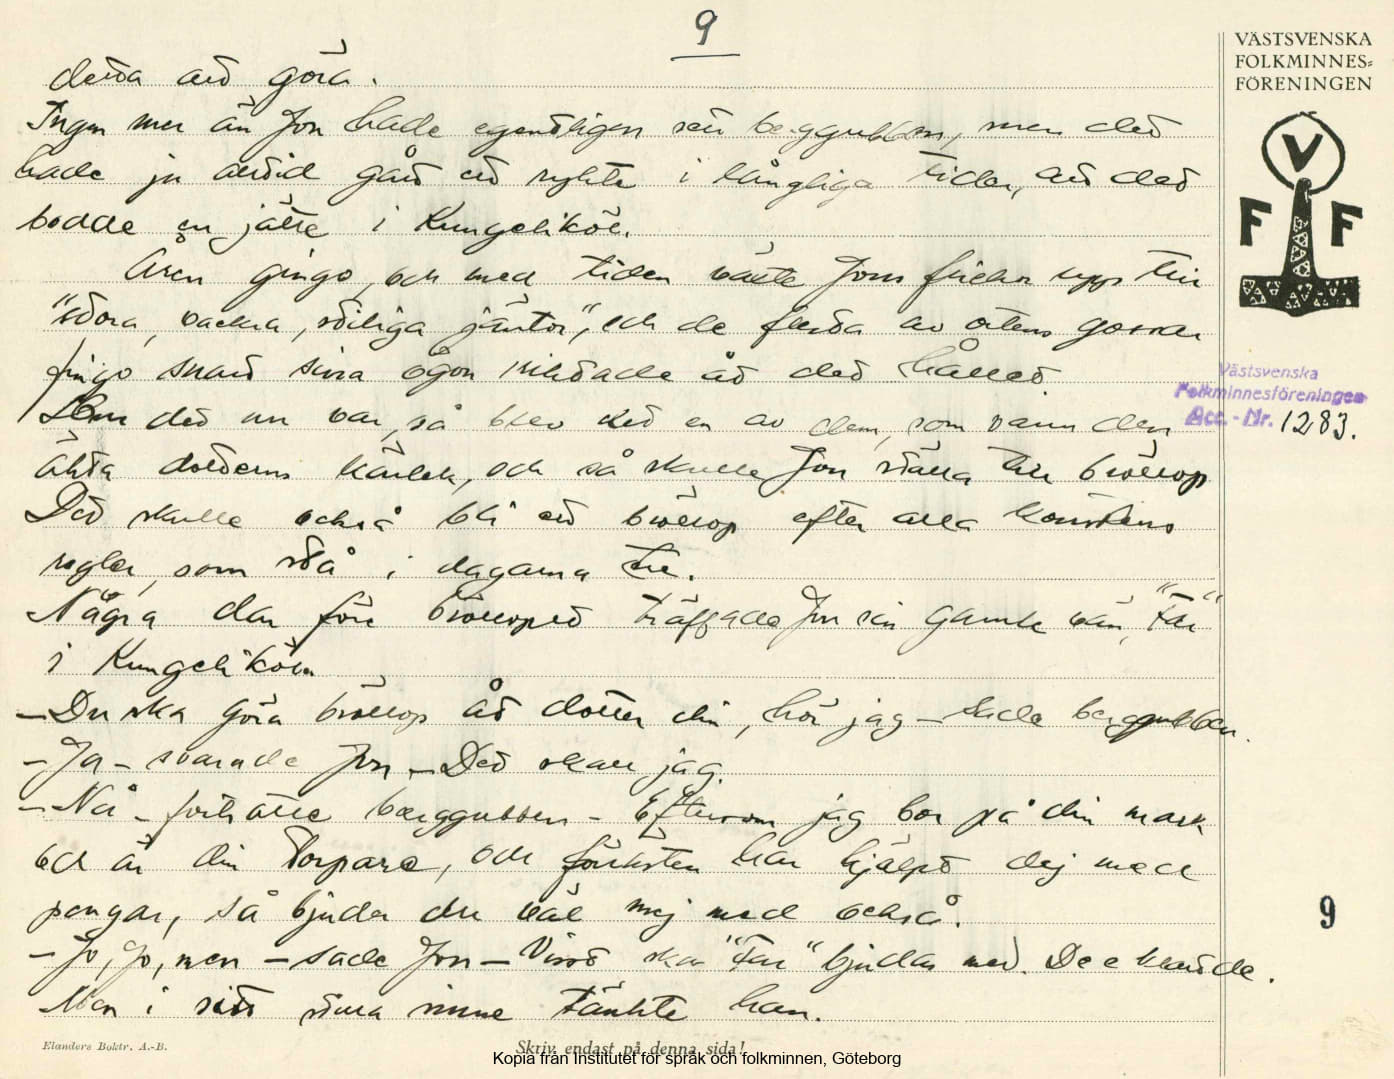 9
detta att göra.
Ingen mer än Jon hade egentligen sett berggubben, men det
hade ju alltid gått ett rykte i långliga tider, att det
bodde en jätte i Kungelikôl.
Åren gingo, och med tiden växte Jons flickor upp till
"stora, vackra, ståtliga jäntor", och de flesta av ortens gossar
fingo snart sina ögon riktade åt det hållet
Hur det nu var, så blev det en av dem, som vann den
äldsta dotterns kärlek, och så skulle Jon ställa till bröllop
Det skulle också bli ett bröllop efter alla konstens
regler, som stå i dagarna tre.
Några dar före bröllopet träffade Jon sin gamle vän, "Far"
i Kungelikôln
– Du ska göra bröllop åt dotter din, hör jag – sade berggubben.
– Ja – svarade Jon – Det skall jag.
– Nå – fortsatte berggubben – Eftersom jag bor på din mark
och är din torpare, och förresten har hjälpt dig med
pengar, så bjuder du väl mig med också.
– Jo, Jo, men – sade Jon – Visst ska "Far" bjudas med. De e klart de.
Men i sitt stilla sinne tänkte han.
VÄSTSVENSKA
FOLKMINNES-
FÖRENINGEN
V
F F
Västsvenska
Folkminnesföreningen
Acc. - Nr. 1283.
9
Elanders Boktr. A.-B.
Skriv endast på denna sida!
Kopia från Institutet för språk och folkminnen, Göteborg